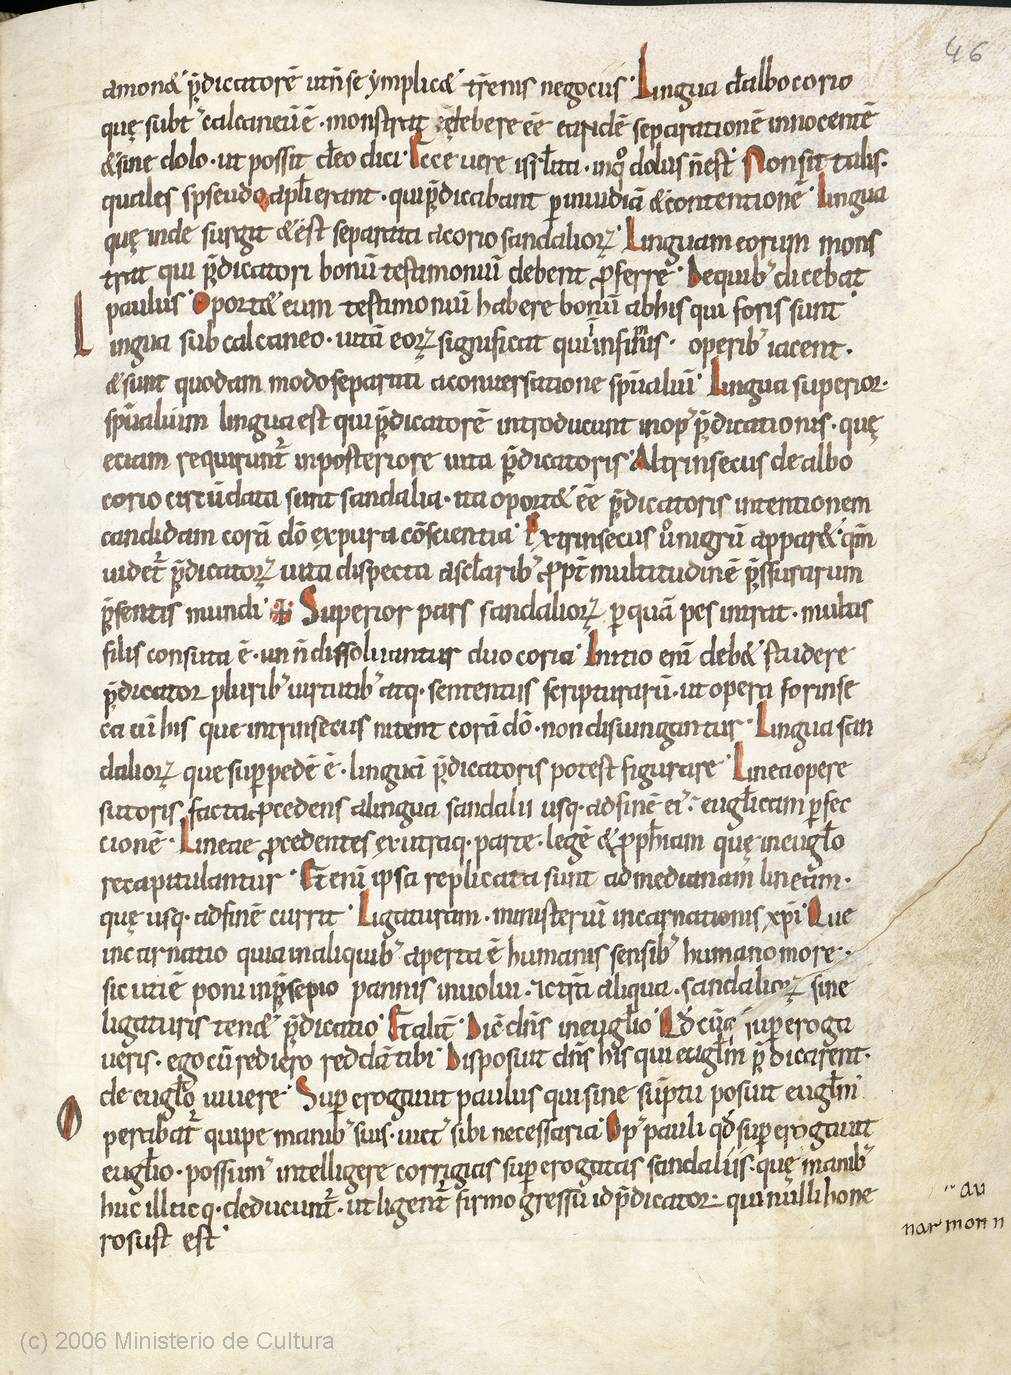 46
amon&́ p̄diccatorē utn̄se ẏmplic& t̄renis negocus Lingua d̄albo corio
quę subt᾿ calcaneū ē · monstrat debere eē eandē separationē innocentē
&sine dolo · ut possit d̄eo dici · Ecce uere isr̄lita · inqͦ dolus n̄ est Non sit talis ·
quales spseudo apl̄i erant · qui p̄dicabant p inuidiā &contentionē Lingua
quę inde surgit &ēst separata acorio sandalioꝝ Linguam eorum mons
trat qui p̄dicatori bonū testimoniū debent ꝓferre · De quib᾿ dicebat
paulus Oport& eum testimoniū habere bonū abhis qui foris sunt
Lingua sub calcaneo · uitā eoꝝ significat qui infirmis · operib᾿ iacent ·
&sunt quodam modo separati aconuersatione sp̄ualiū Lingua superior ·
sp̄ualium lingua est qui p̄dicatorē introducunt inop᾿ p̄dicationis · quę
eciam requirunt᷑ inposteriore uita p̄dicatoris Altrinsecus de albo
corio circūdata sunt sandalia · ita oport& eē p̄dicatoris intentionem
candidam corā dō expura cōscientia Extrinsecus ů nigrū appar& · qm̄
uidet᷑ p̄dicatoꝝ uita dispecta asclarib᾿ ꝓpt᾿ multitudinē p̄ssurarum
p̄sentis mundi Superior pars sandalioꝝ p quā pes intrat · multis
filis consuta ē · un n̄ dissoluantur duo coria Initio eni᷑ deb& studere
p̄dicator plurib᾿ uirtutib᾿ atq · sententiis scripturarū · ut opera forinse
ca cū his que intrinsecus nitent corā dō · non disiungantur · Lingua san
dalioꝝ que sup pedē ē · linguā p̄dicatoris potest figurare Linea opere
sutoris facta ꝓcedens alingua sandalii usq · adfinē ei᾿ · eugl̄icam pfec
cionē · Lineae ꝓcedentes exutraq · parte · legē & ꝓph̄iam quę ineugl̄o
recapitulantur · Etenī ipsa replicata sunt admedianam lineam ·
quę usq · adfinē currit Ligaturam · ministeriū incarnationis xp̄i Que
incarnatio quia inaliquib᾿ aperta ē humanis sensib᾿ humano more ·
sicuti ē poni inp̄sepio pannis inuolui · &ct̄rā aliqua · sandalioꝝ sine
ligaturis ten& p̄dicatio Etalit᷑ Dic̄ dn̄s ineugl̄io Qd̄ cūq superoga
ueris · ego cū rediero reddā tibi Disposuit dn̄s his qui eugl̄m p̄dicarent ·
de eugl̄o uiuere · Superogauit paulus qui sine sūptu posuit eugl̄m
Operabat᷑ quipe manib᾿ suis · uict᾿ sibi necessaria Op᾿ pauli qd̄ superogauit
eugl̄io · possum᾿ intelligere corrigias superogatas sandaliis · quę manib᾿
huc illuc q · deducunt᷑ · ut ligent᷑ firmo gressū id p̄dicator · qui nulli hone
rosust est
au
nar mon n
(c) 2006 Ministerio de Cultura